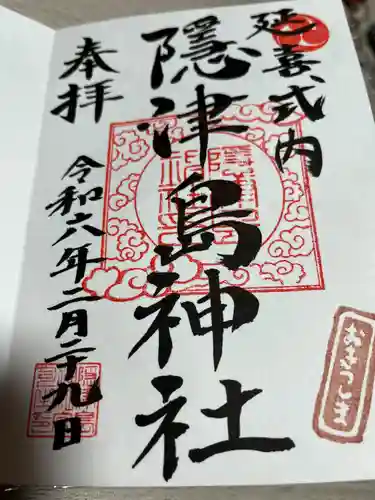 延喜式内
隱津島神社
奉拝
令和六年二月二十九日
おきつしま